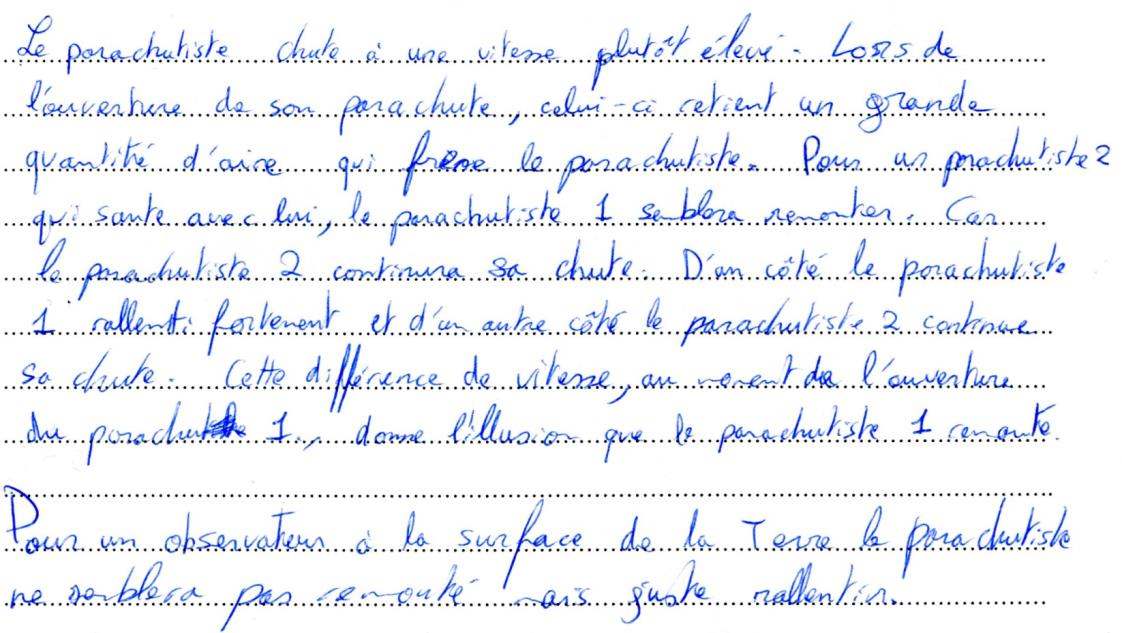 Le parachutiste chute à une vitesse plutôt élevé. Lors de
l'ouverture de son parachute, celui-ci retient un grande
quantité d'aire qui frène le parachutiste. Pour un parachutiste 2
qui saute avec lui, le parachutiste 1 semblera remonter. Car
le parachutiste 2 continura sa chute. D'un côté le parachutiste
1 rallenti fortement et d'un autre côté le parachutiste 2 continue
sa chute. Cette différence de vitesse, au moment de l'ouverture
du parachute 1, donne l'illusion que le parachutiste 1 remonte.
Pour un observateur à la surface de la Terre le parachutiste
ne semblera pas remonté mais juste rallentir.